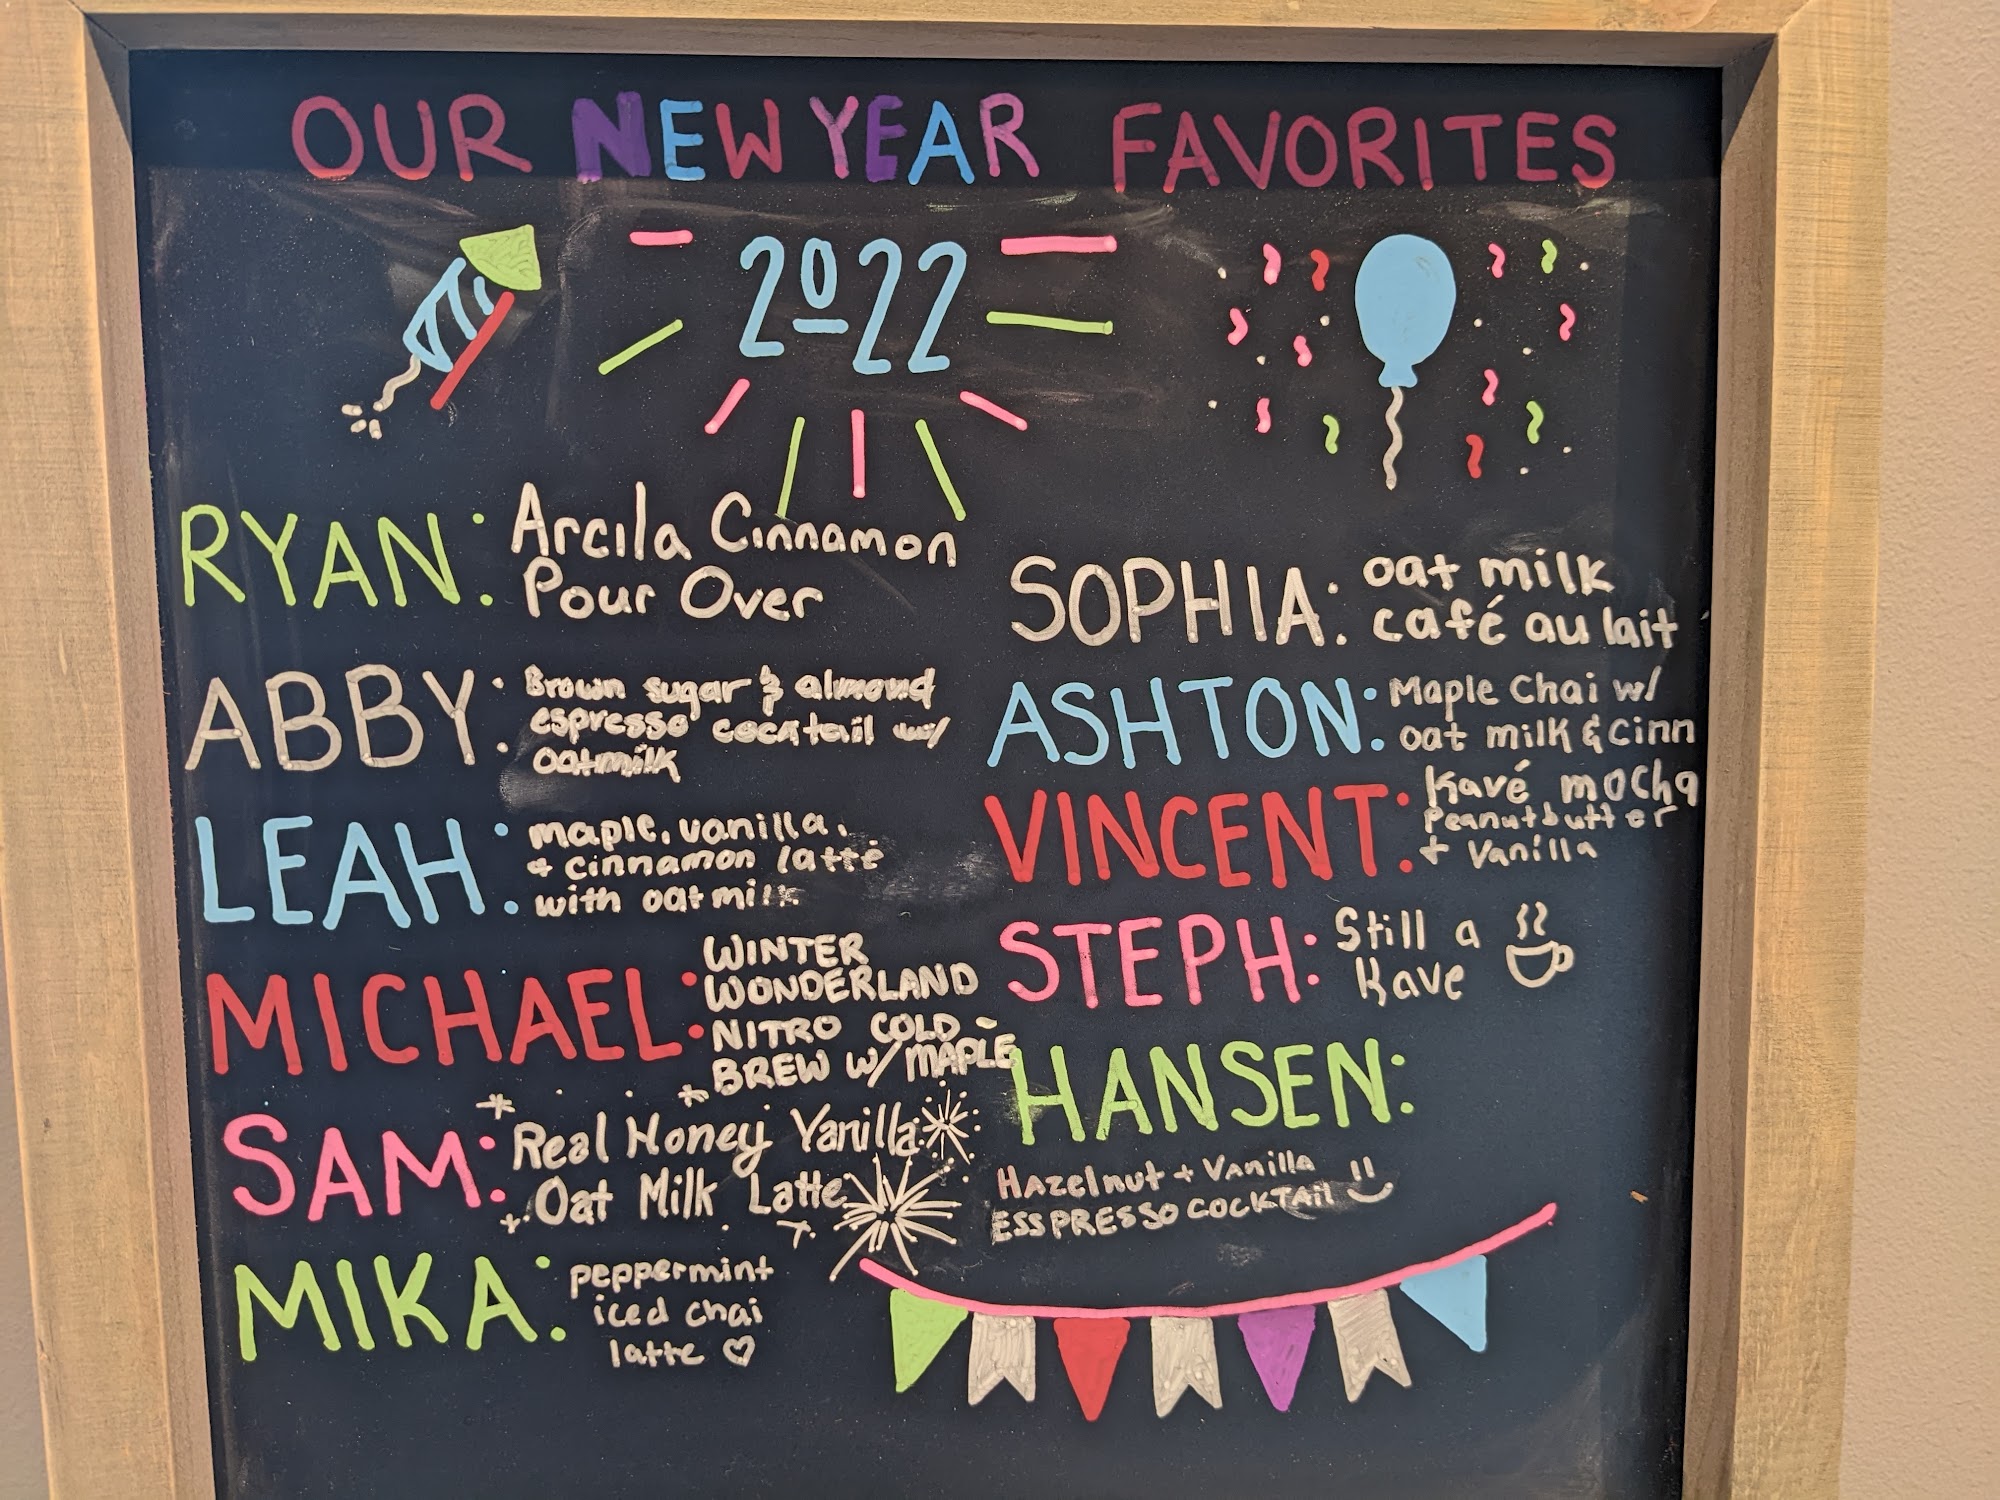 OUR NEW YEAR FAVORITES
2022
RYAN: Arcila Cinnamon
Pour Over
ABBY: Brown sugar & almond
espresso cocktail w/
oatmilk
LEAH: maple, vanilla,
+ cinnamon latte
with oatmilk
MICHAEL: WINTER
WONDERLAND
NITRO COLD-
BREW W/ MAPLE
SAM: Real Honey Vanilla
Oat Milk Latte
MIKA: peppermint
iced chai
latte
SOPHIA: oat milk
café au lait
ASHTON: Maple Chai w/
oat milk & cinn
VINCENT: Kavé mocha
Peanutbutter
+ Vanilla
STEPH: Still a
Kave
HANSEN:
Hazelnut + Vanilla
ESSPRESSO COCKTAil